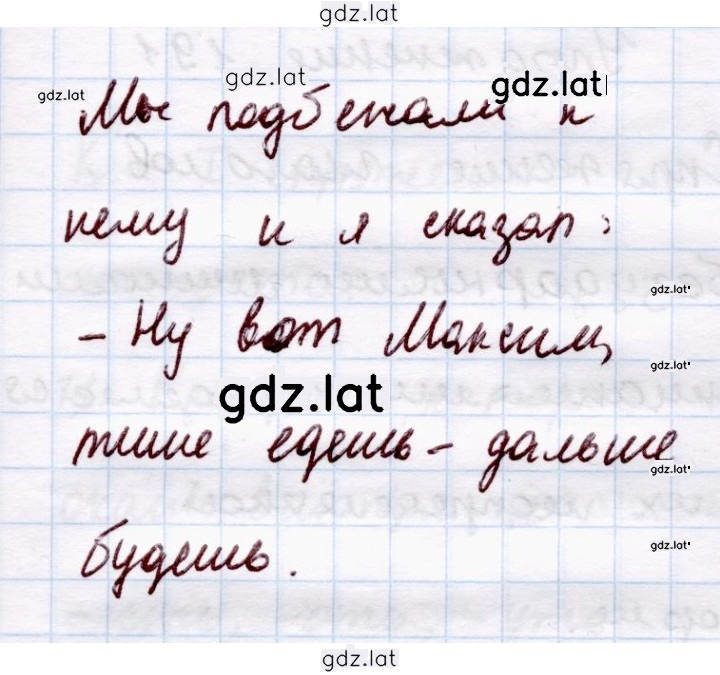 gdz.lat
gdz.lat gdz.lat gdz.lat
Мы подбежали к
нему и я сказал :
gdz.lat
- Ну вот Максим,
gdz.lat
gdz.lat
тише едешь - дальше
gdz.lat
будешь.
gdz.lat
gdz.lat